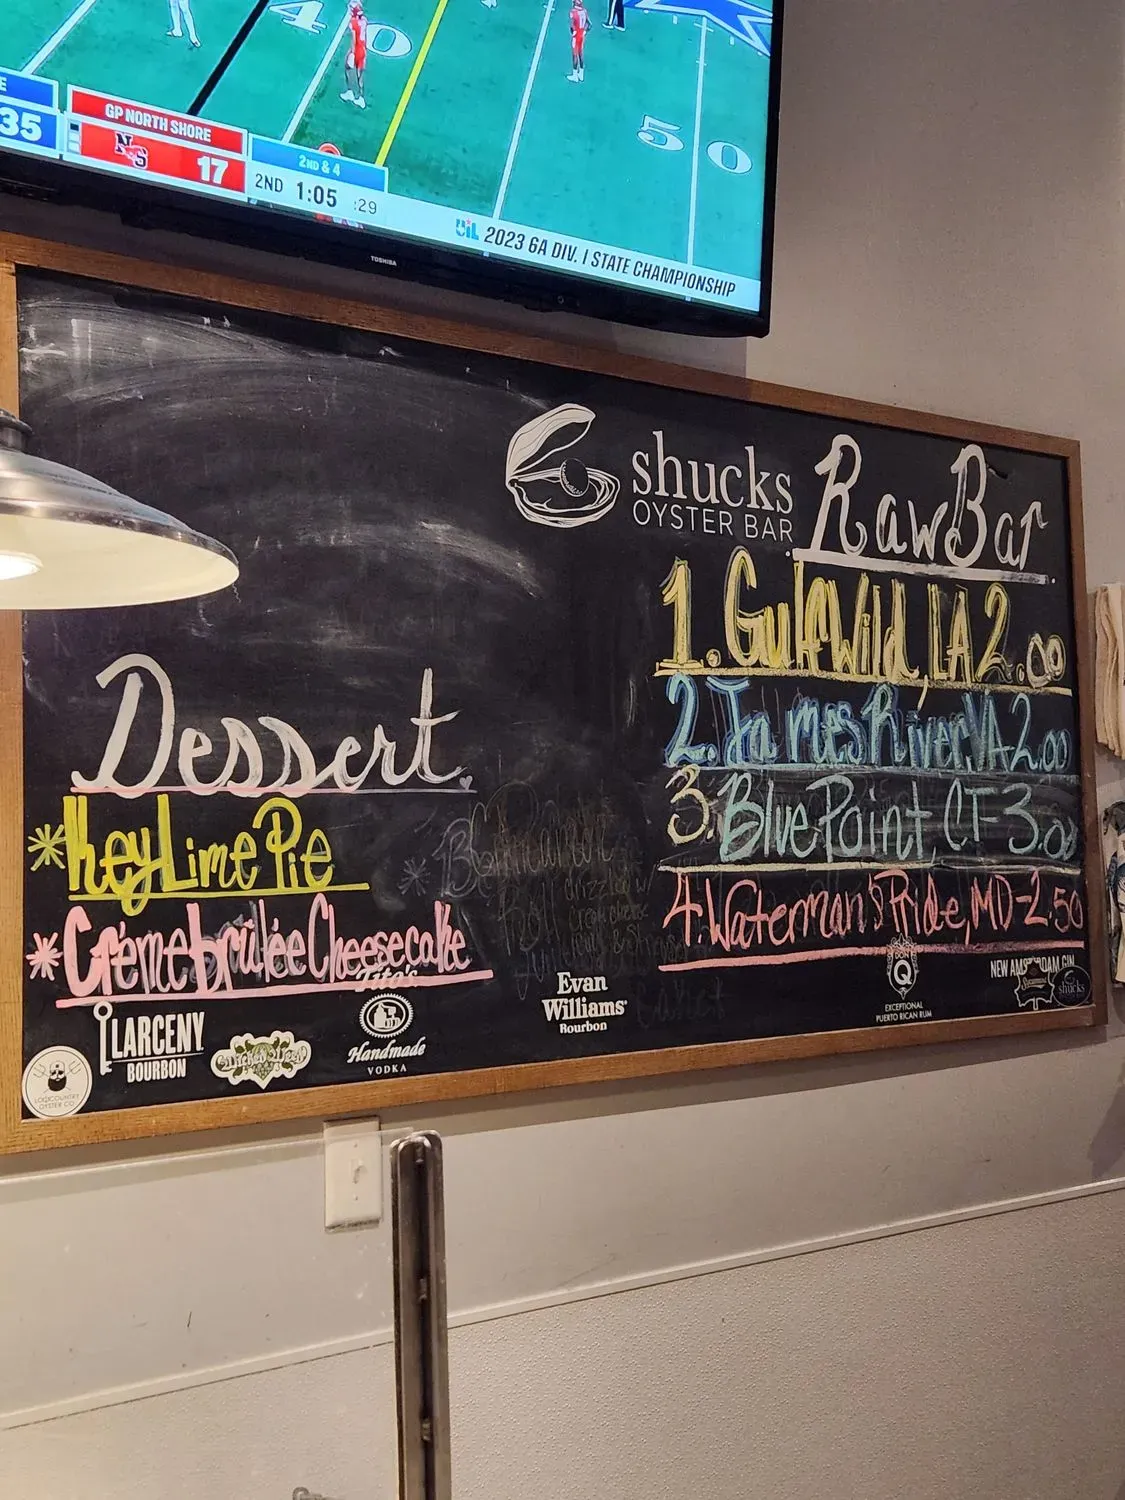 40
50
E
35
GP NORTH SHORE
NS
17
2ND & 4
2ND 1:05 :29
UIL 2023 6A DIV. I STATE CHAMPIONSHIP
TOSHIBA
shucks
OYSTER BAR
Raw Bar
1. Gulf Wild, LA 2.00
2. James River, VA 2.00
3. Blue Point, CT 3.00
4. Waterman's Pride, MD - 2.50
Dessert
*Key Lime Pie
*Crème brûlée Cheesecake
drizzled w/
cream cheese
LARCENY
BOURBON
Tito's
Handmade
VODKA
Evan
Williams
Bourbon
DON
Q
EXCEPTIONAL
PUERTO RICAN RUM
NEW AMSTERDAM GIN
shucks
OYSTER CO